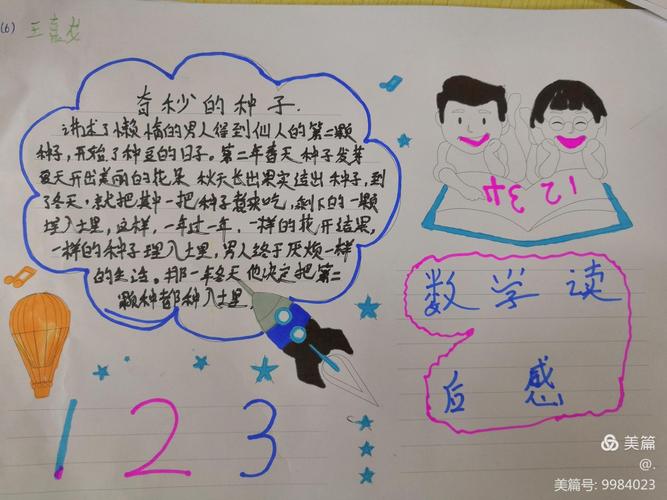 (6) 王嘉龙
奇秒的种子.
讲述了懒惰的男人得到仙人的第二颗
种子,开始了种豆的日子。第二年春天种子发芽
夏天开出美丽的花朵 秋天长出果实结出种子,到
了冬天,就把其中一把种子煮来吃,剩下的一颗
埋入土里,这样,一年过一年,一样的花开结果,
一样的种子埋入土里,男人终于厌烦一样
的生活。那一年冬天他决定把第二
颗种都种入土里
1 2 3 4
数学读
后感
1 2 3
美篇
@.
美篇号: 9984023